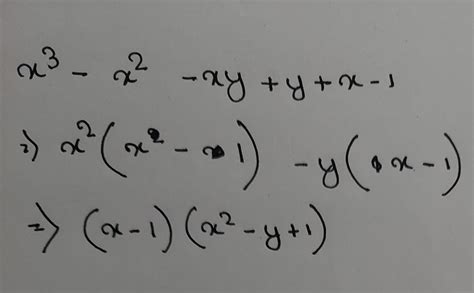 x³ - x² - xy + y + x - 1
⇒ x²(x - 1) - y(x - 1)
⇒ (x - 1)(x² - y + 1)